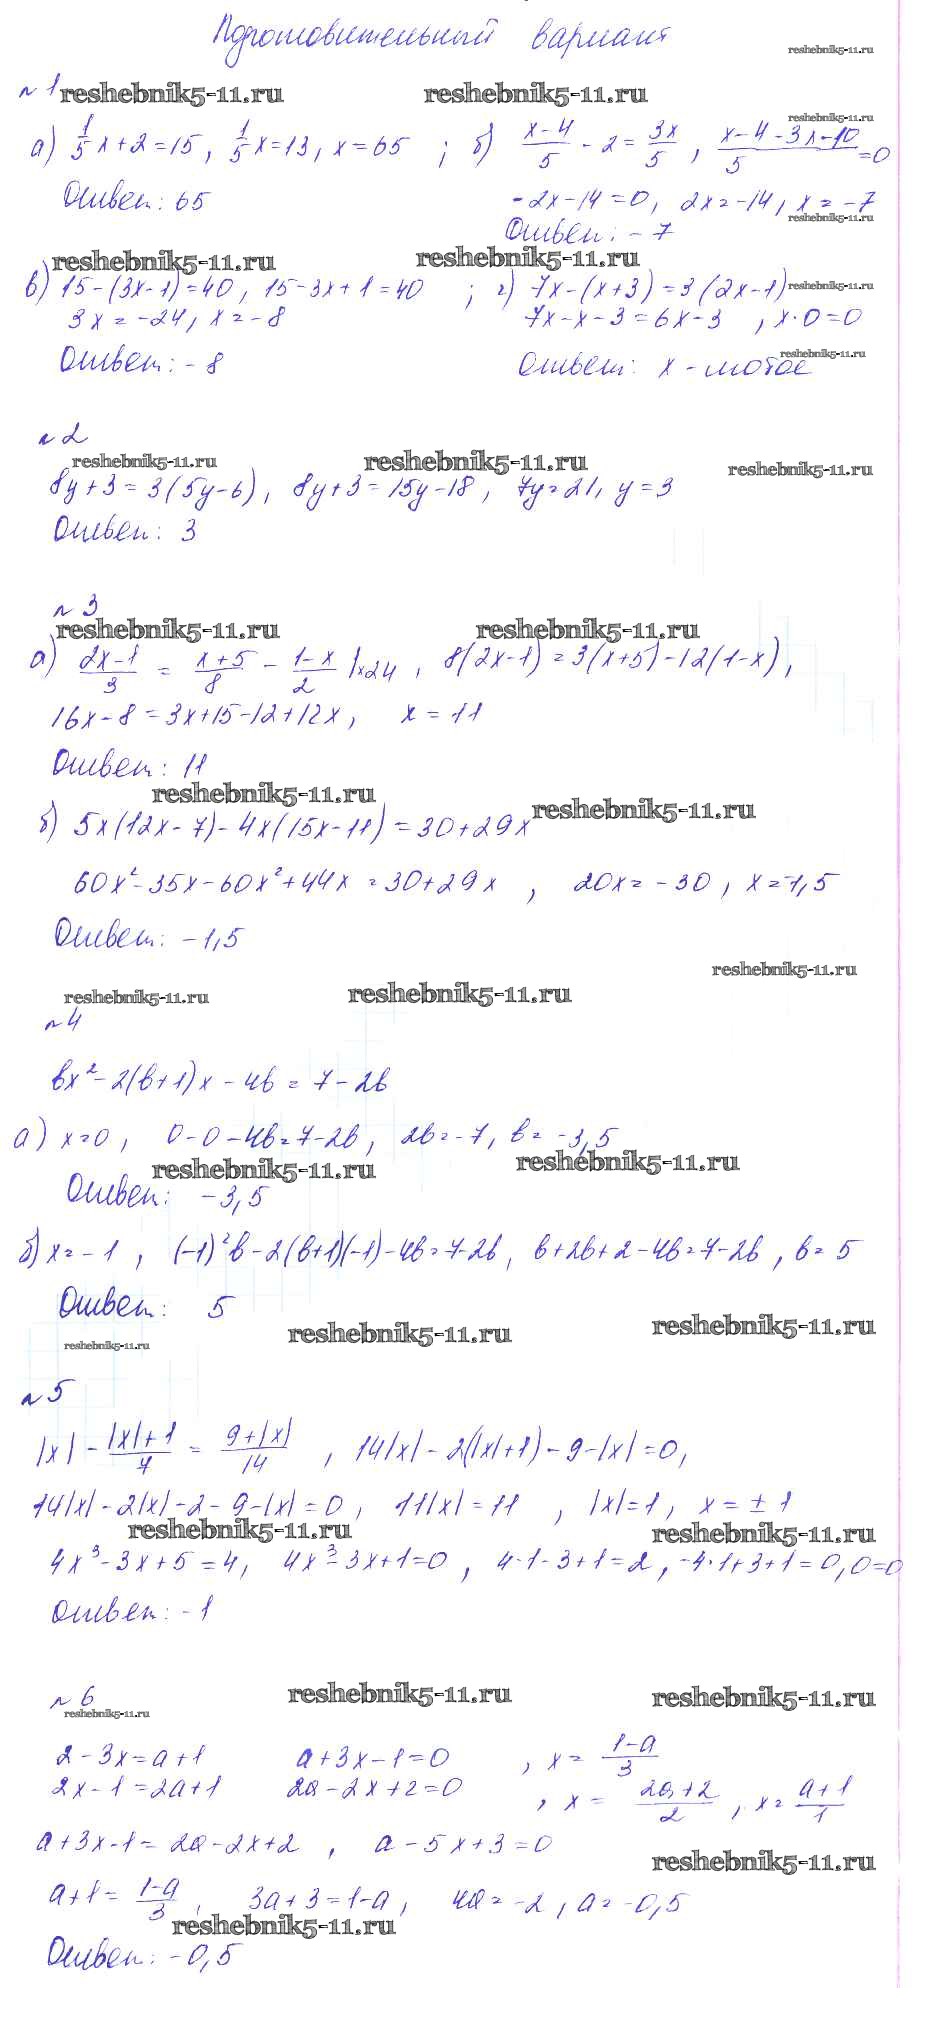 Подготовительный вариант
reshebnik5-11.ru
№1
reshebnik5-11.ru reshebnik5-11.ru
reshebnik5-11.ru
а) 1/5 x + 2 = 15, 1/5 x = 13, x = 65 ; б) (x-4)/5 - 2 = 3x/5, (x-4-3x-10)/5 = 0
Ответ: 65
-2x-14=0, 2x=-14, x=-7
reshebnik5-11.ru
Ответ: -7
reshebnik5-11.ru reshebnik5-11.ru
в) 15-(3x-1)=40, 15-3x+1=40 ; г) 7x-(x+3)=3(2x-1)
reshebnik5-11.ru
3x=-24, x=-8
7x-x-3=6x-3, x·0=0
reshebnik5-11.ru
Ответ: -8
Ответ: x - любое
№2
reshebnik5-11.ru reshebnik5-11.ru reshebnik5-11.ru
8y+3=3(5y-6), 8y+3=15y-18, 7y=21, y=3
Ответ: 3
№3
reshebnik5-11.ru reshebnik5-11.ru
а) (2x-1)/3 = (x+5)/8 - (1-x)/2 |×24, 8(2x-1)=3(x+5)-12(1-x),
16x-8=3x+15-12+12x, x=11
Ответ: 11
reshebnik5-11.ru reshebnik5-11.ru
б) 5x(12x-7)-4x(15x-11)=30+29x
60x²-35x-60x²+44x=30+29x, 20x=-30, x=-1,5
Ответ: -1,5
reshebnik5-11.ru reshebnik5-11.ru reshebnik5-11.ru
№4
bx²-2(b+1)x-4b=7-2b
а) x=0, 0-0-4b=7-2b, 2b=-7, b=-3,5
reshebnik5-11.ru reshebnik5-11.ru
Ответ: -3,5
б) x=-1, (-1)²b-2(b+1)(-1)-4b=7-2b, b+2b+2-4b=7-2b, b=5
Ответ: 5
reshebnik5-11.ru reshebnik5-11.ru reshebnik5-11.ru
№5
|x| - (|x|+1)/7 = (9+|x|)/14, 14|x|-2(|x|+1)-9-|x|=0,
14|x|-2|x|-2-9-|x|=0, 11|x|=11, |x|=1, x=±1
reshebnik5-11.ru reshebnik5-11.ru
4x³-3x+5=4, 4x³-3x+1=0, 4·1-3+1=2, -4·1+3+1=0, 0=0
Ответ: -1
№6
reshebnik5-11.ru reshebnik5-11.ru reshebnik5-11.ru
2-3x=a+1 a+3x-1=0, x=(1-a)/3
2x-1=2a+1 2a-2x+2=0, x=(2a+2)/2, x=(a+1)/1
a+3x-1=2a-2x+2, a-5x+3=0
reshebnik5-11.ru
a+1=(1-a)/3, 3a+3=1-a, 4a=-2, a=-0,5
reshebnik5-11.ru
Ответ: -0,5